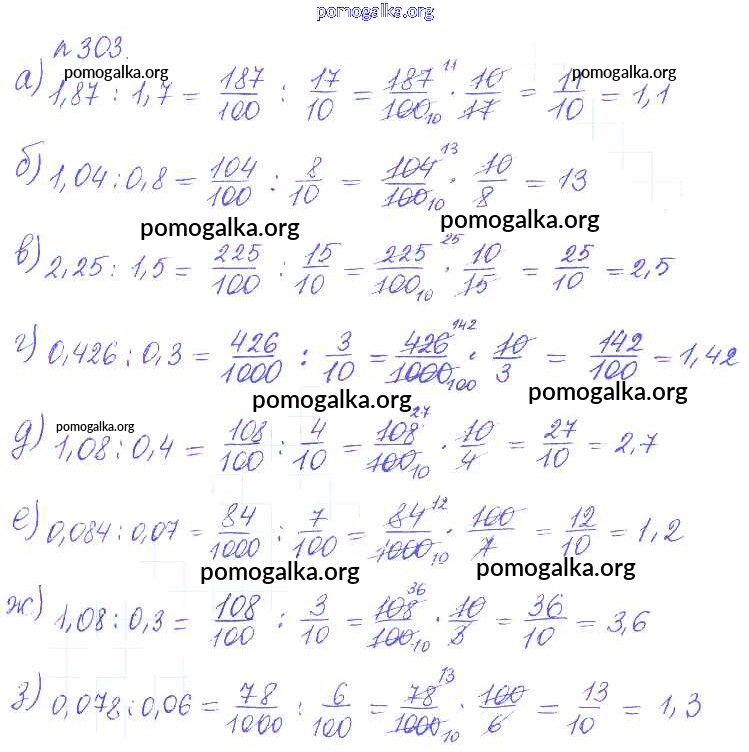 pomogalka.org
п 303.
pomogalka.org pomogalka.org pomogalka.org
а) 1,87 : 1,7 = 187/100 : 17/10 = 187 11/100 10 · 10/17 = 11/10 = 1,1
б) 1,04 : 0,8 = 104/100 : 8/10 = 104 13/100 10 · 10/8 = 13
pomogalka.org pomogalka.org
в) 2,25 : 1,5 = 225/100 : 15/10 = 225 25/100 10 · 10/15 = 25/10 = 2,5
г) 0,426 : 0,3 = 426/1000 : 3/10 = 426 142/1000 100 · 10/3 = 142/100 = 1,42
pomogalka.org pomogalka.org
pomogalka.org
д) 1,08 : 0,4 = 108/100 : 4/10 = 108 27/100 10 · 10/4 = 27/10 = 2,7
е) 0,084 : 0,07 = 84/1000 : 7/100 = 84 12/1000 10 · 100/7 = 12/10 = 1,2
pomogalka.org pomogalka.org
ж) 1,08 : 0,3 = 108/100 : 3/10 = 108 36/100 10 · 10/3 = 36/10 = 3,6
з) 0,078 : 0,06 = 78/1000 : 6/100 = 78 13/1000 10 · 100/6 = 13/10 = 1,3